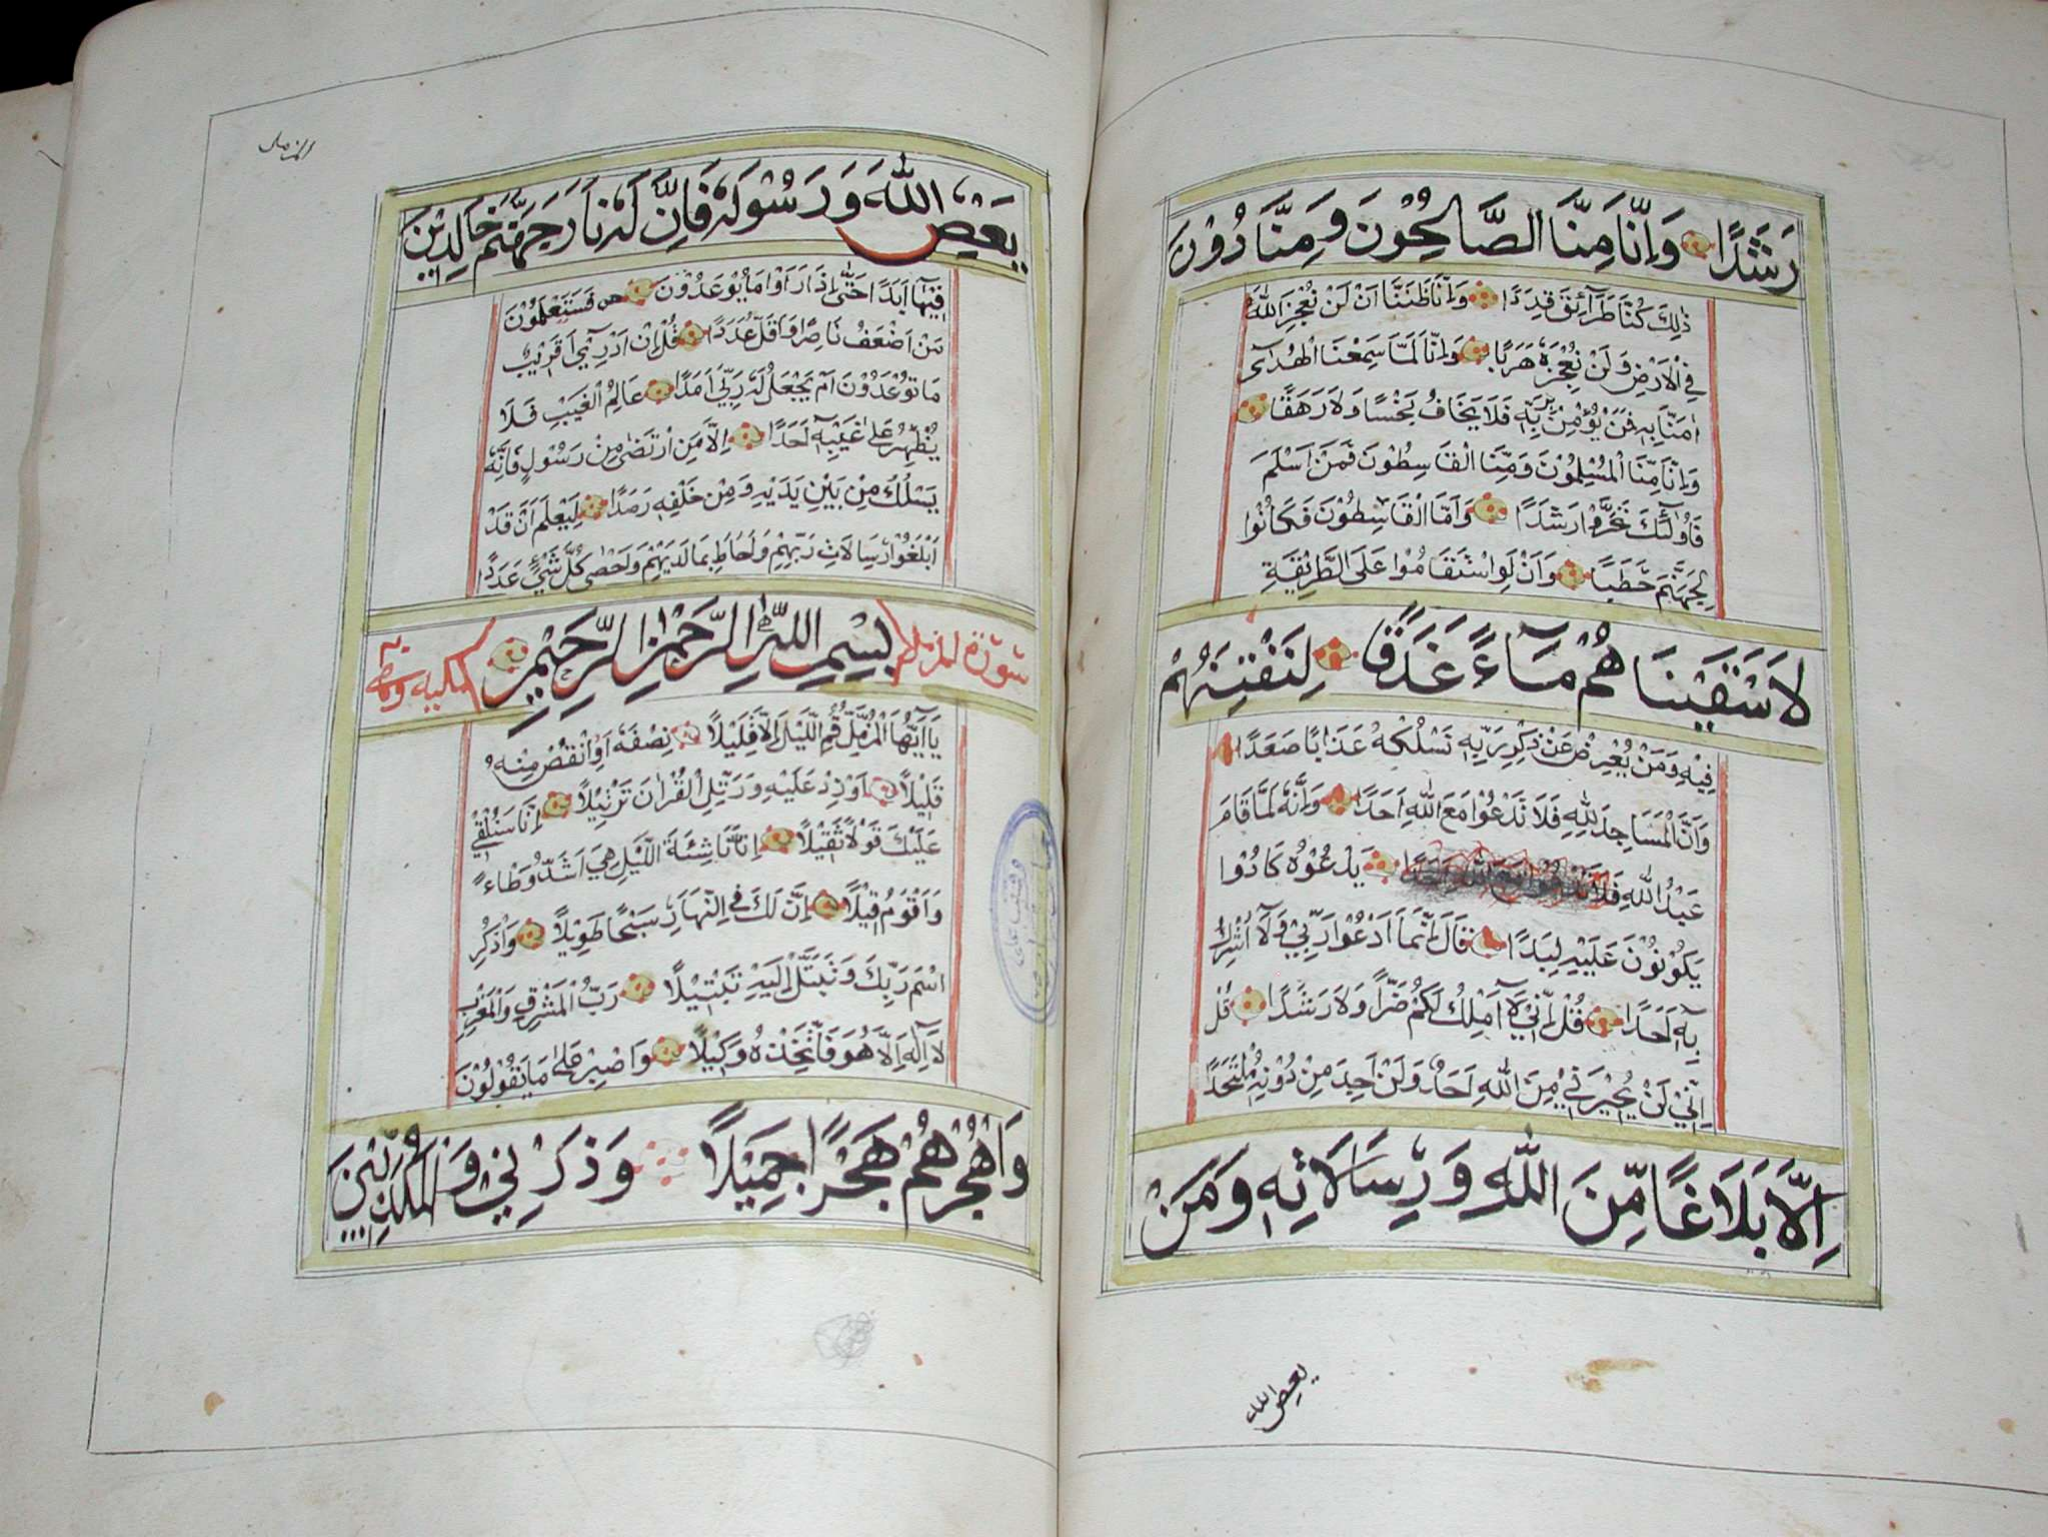 رَشَدًا وَاِنَّا مِنَّا الصَّالِحُوْنَ وَمِنَّا دُوْنَ
ذٰلِكَ كُنَّا طَرَآئِقَ قِدَدًا وَاَنَّا ظَنَنَّا اَنْ لَنْ نُعْجِزَ اللّٰهَ
فِى الْاَرْضِ وَلَنْ نُعْجِزَهٗ هَرَبًا وَاِنَّا لَمَّا سَمِعْنَا الْهُدٰى
اٰمَنَّا بِهٖ فَمَنْ يُؤْمِنْ بِرَبِّهٖ فَلَا يَخَافُ بَخْسًا وَلَا رَهَقًا
وَاِنَّا مِنَّا الْمُسْلِمُوْنَ وَمِنَّا الْقَاسِطُوْنَ فَمَنْ اَسْلَمَ
فَاُولٰٓئِكَ تَحَرَّوْا رَشَدًا وَاَمَّا الْقَاسِطُوْنَ فَكَانُوْا
لِجَهَنَّمَ حَطَبًا وَاَنْ لَوِ اسْتَقَامُوْا عَلَى الطَّرِيْقَةِ
لَاَسْقَيْنَاهُمْ مَآءً غَدَقًا لِنَفْتِنَهُمْ
فِيْهِ وَمَنْ يُعْرِضْ عَنْ ذِكْرِ رَبِّهٖ نَسْلُكْهُ عَذَابًا صَعَدًا
وَاَنَّ الْمَسَاجِدَ لِلّٰهِ فَلَا تَدْعُوْا مَعَ اللّٰهِ اَحَدًا وَاَنَّهٗ لَمَّا قَامَ
عَبْدُ اللّٰهِ فَلَا تَدْعُوْا مَعَ اللّٰهِ اَحَدًا يَدْعُوْهُ كَادُوْا
يَكُوْنُوْنَ عَلَيْهِ لِبَدًا قَالَ اِنَّمَا اَدْعُوْا رَبِّيْ وَلَآ اُشْرِكُ
بِهٖٓ اَحَدًا قُلْ اِنِّيْ لَآ اَمْلِكُ لَكُمْ ضَرًّا وَلَا رَشَدًا قُلْ
اِنِّيْ لَنْ يُجِيْرَنِيْ مِنَ اللّٰهِ اَحَدٌ وَلَنْ اَجِدَ مِنْ دُوْنِهٖ مُلْتَحَدًا
اِلَّا بَلَاغًا مِّنَ اللّٰهِ وَرِسَالَاتِهٖ وَمَنْ
يعص الله
المزمل
يَعْصِ اللّٰهَ وَرَسُوْلَهٗ فَاِنَّ لَهٗ نَارَ جَهَنَّمَ خَالِدِيْنَ
فِيْهَآ اَبَدًا حَتّٰى اِذَا رَاَوْا مَا يُوْعَدُوْنَ فَسَتَعْلَمُوْنَ
مَنْ اَضْعَفُ نَاصِرًا وَاَقَلُّ عَدَدًا قُلْ اِنْ اَدْرِيْٓ اَقَرِيْبٌ
مَا تُوْعَدُوْنَ اَمْ يَجْعَلُ لَهٗ رَبِّيْٓ اَمَدًا عَالِمُ الْغَيْبِ فَلَا
يُظْهِرُ عَلٰى غَيْبِهٖٓ اَحَدًا اِلَّا مَنِ ارْتَضٰى مِنْ رَسُوْلٍ فَاِنَّهٗ
يَسْلُكُ مِنْ بَيْنِ يَدَيْهِ وَمِنْ خَلْفِهٖ رَصَدًا لِيَعْلَمَ اَنْ قَدْ
اَبْلَغُوْا رِسَالَاتِ رَبِّهِمْ وَاَحَاطَ بِمَا لَدَيْهِمْ وَاَحْصٰى كُلَّ شَيْءٍ عَدَدًا
سُوْرَة المزمل بِسْمِ اللّٰهِ الرَّحْمٰنِ الرَّحِيْمِ مكية
يَآ اَيُّهَا الْمُزَّمِّلُ قُمِ اللَّيْلَ اِلَّا قَلِيْلًا نِصْفَهٗ اَوِ انْقُصْ مِنْهُ
قَلِيْلًا اَوْ زِدْ عَلَيْهِ وَرَتِّلِ الْقُرْاٰنَ تَرْتِيْلًا اِنَّا سَنُلْقِيْ
عَلَيْكَ قَوْلًا ثَقِيْلًا اِنَّ نَاشِئَةَ اللَّيْلِ هِيَ اَشَدُّ وَطْاءً
وَاَقْوَمُ قِيْلًا اِنَّ لَكَ فِي النَّهَارِ سَبْحًا طَوِيْلًا وَاذْكُرِ
اسْمَ رَبِّكَ وَتَبَتَّلْ اِلَيْهِ تَبْتِيْلًا رَبُّ الْمَشْرِقِ وَالْمَغْرِبِ
لَآ اِلٰهَ اِلَّا هُوَ فَاتَّخِذْهُ وَكِيْلًا وَاصْبِرْ عَلٰى مَا يَقُوْلُوْنَ
وَاهْجُرْهُمْ هَجْرًا جَمِيْلًا وَذَرْنِيْ وَالْمُكَذِّبِيْنَ